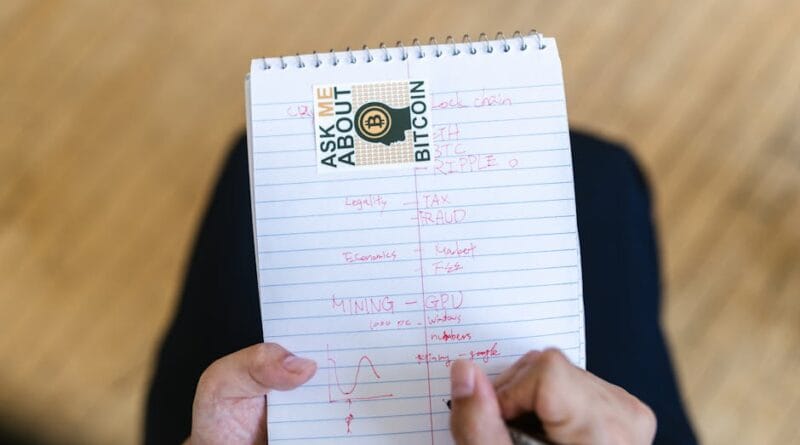 ASK ME
ABOUT
BITCOIN
ock chain
TH
BTC
- RIPPLE
Legality - TAX
- FRAUD
Economics - Market
- FEE
MINING - GPU
- Windows
numbers
Mining - google